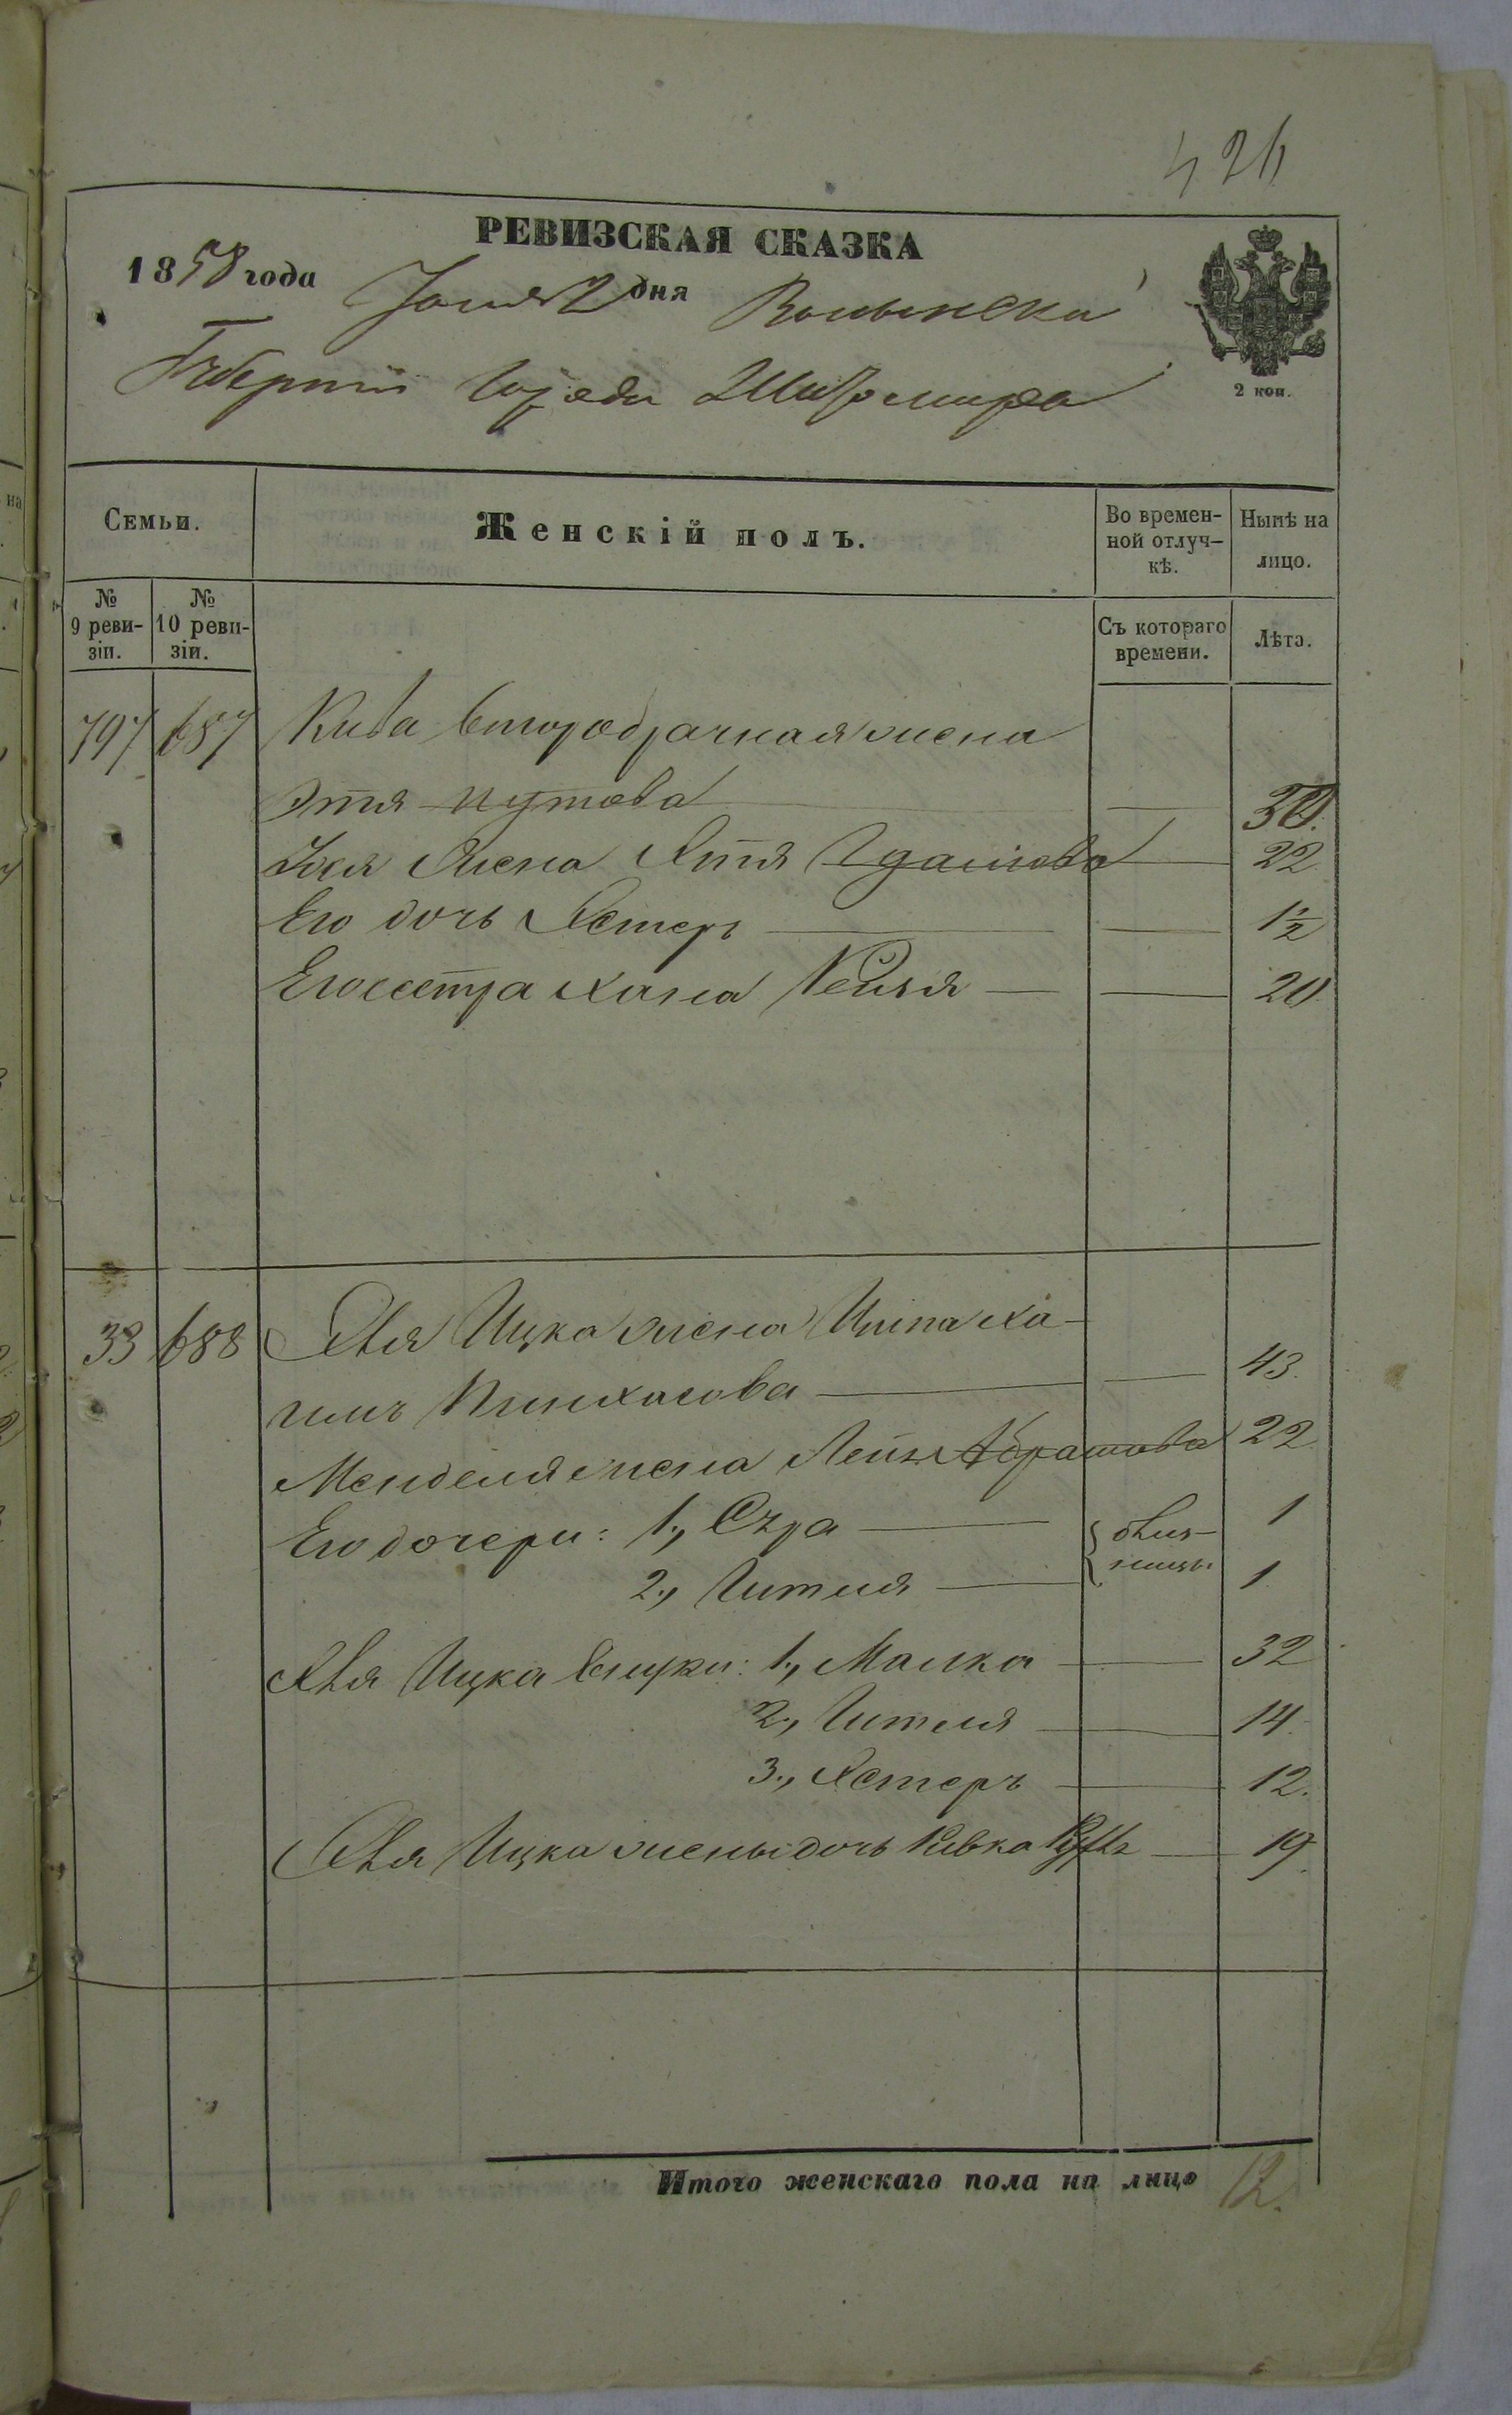 426
РЕВИЗСКАЯ СКАЗКА
1858 года Іюня 2 дня Волынской
Губерніи Города Житомира
2 коп.
Семьи.
Женскій полъ.
Во времен-
ной отлуч-
кѣ.
Нынѣ на
лицо.
№
9 реви-
зіи.
№
10 реви-
зіи.
Съ котораго
времени.
Лѣта.
797 687 Кива второбрачная жена
Этя 30.
жена Этя 22
Его дочь Эстеръ 1½
Его сестра Хана Рейзя 20
33 688 Ицка жена Ципа Ха-
Пинхасова 43.
Менделя жена Лея Абрамова 22
Его дочери: 1, Сура 1
2, Гитля 1
близ-
ницы
Ицка внучки: 1, Малка 32
2, Гитля 14.
3, Эстеръ 12.
Ицка жены дочь Ривка 19.
Итого женскаго пола на лицо 12.